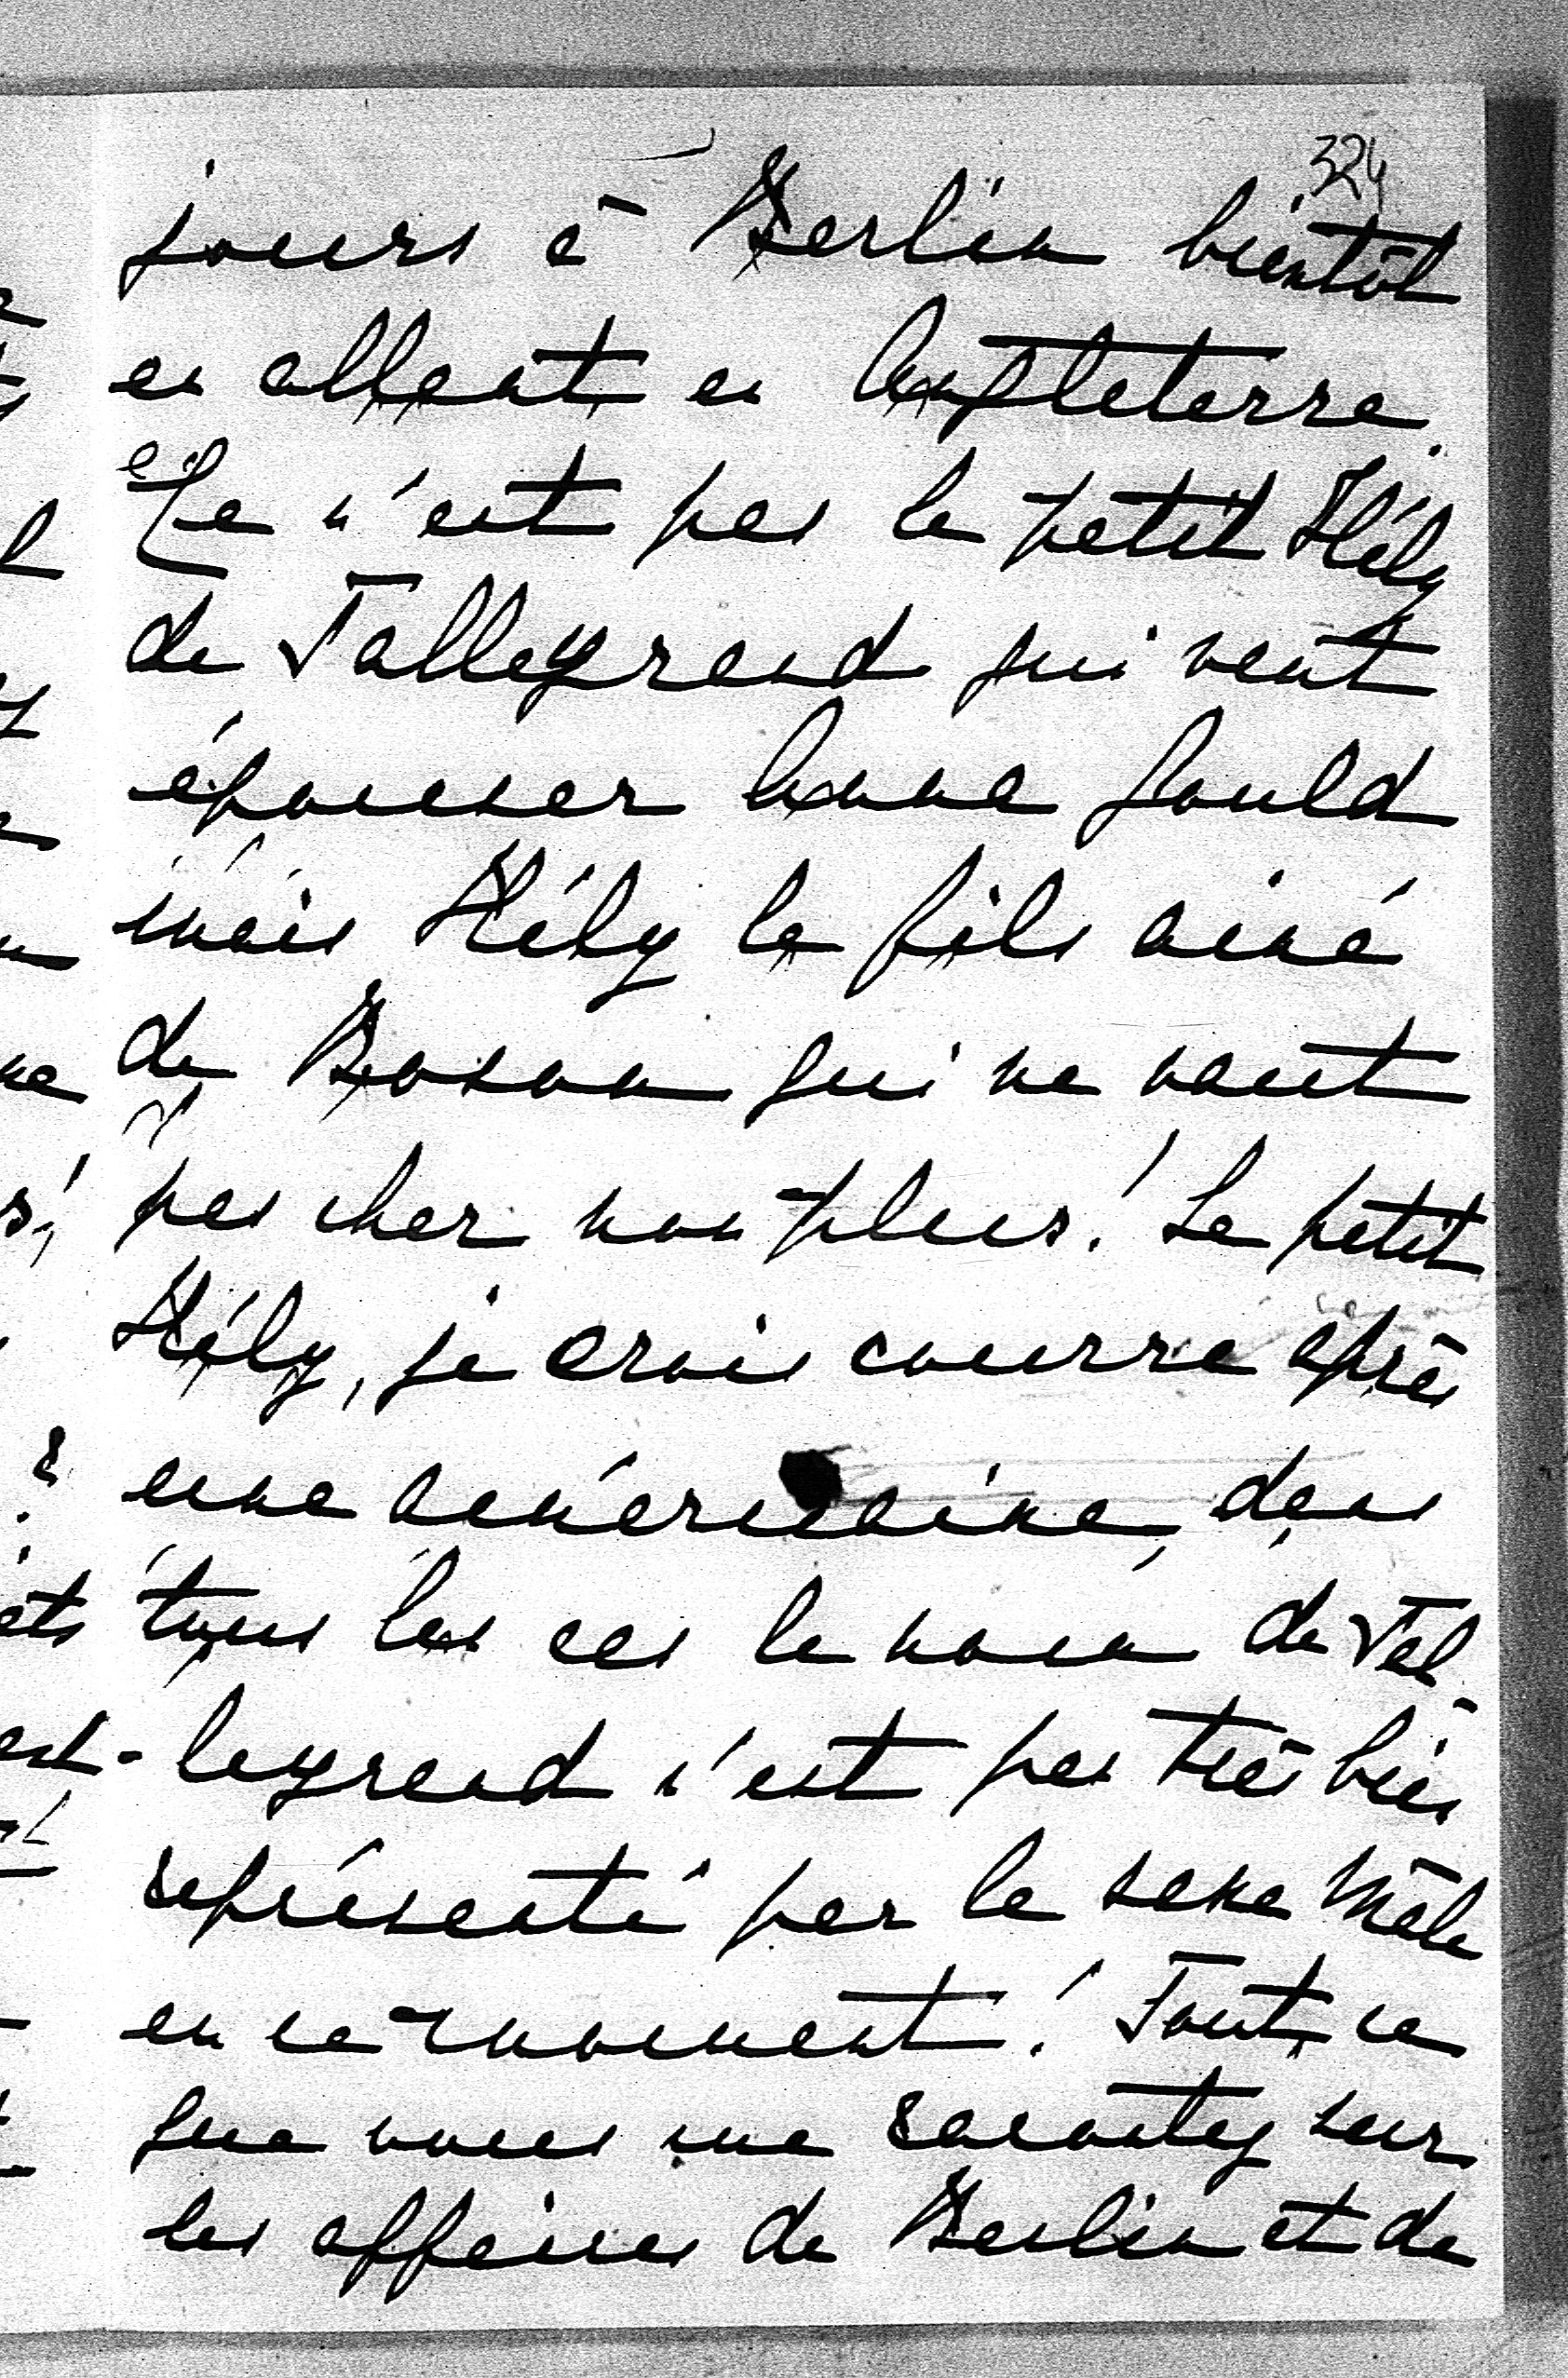 324
jours à Berlin bientôt
en allant en Angleterre.
Ce n'est pas le petit Hély
de Talleyrand qui veut
épouser Anna Gould
mais Hély le fils ainé
de Boson qui ne vaut
pas cher non plus! Le petit
Hély, je crois courre après
une américaine, dans
tous les cas le nom de Tal-
leyrand n'est pas très bien
représenté par le sexe mâle
en ce moment! Tout ce
que vous me racontez sur
les affaires de Berlin et de